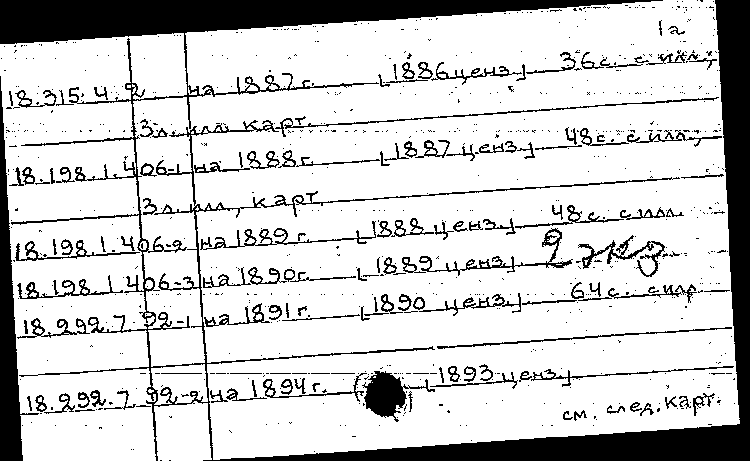 1а
18.315.4.2 на 1887г. [1886 ценз.] 36с. с илл.;
3л. илл. карт.
18.198.1.406-1 на 1888г. [1887 ценз.] 48с. с илл.;
3л. илл., карт.
18.198.1.406-2 на 1889г. [1888 ценз.] 48с. с илл.
18.198.1.406-3 на 1890г. [1889 ценз.] 2 экз
18.292.7.92-1 на 1891г. [1890 ценз.] 64с. с илл
18.292.7.92-2 на 1894г. [1893 ценз.]
см. след. карт.